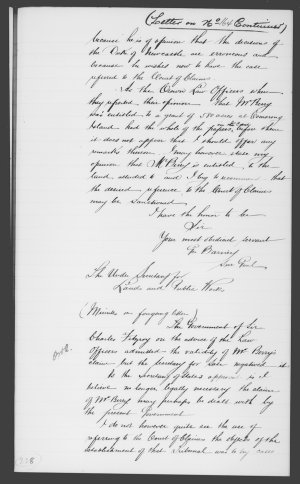 (Letter on No 264 Continued)
because he is of opinion that the decisions of
the Duke of Newcastle are erroneous and
because he wishes now to have the case
referred to the Court of Claims
As the Crown Law Officers when
they reported their opinion that Mr Berry
was entitled to a grant of acres at
Island had the whole of the papers before them
it does not appear that I should offer any
remarks thereon I may however state my
opinion that Mr Berry is entitled to the
land alluded to and I beg to that
the desired reference to the Court of Claims
may be sanctioned
I have the honor to be
Sir
Your most obedient servant
Sur Genl
The Under Secretary for
Lands and Public Works
(Minute on foregoing letter)
The Government of Sir
Charles Fitzroy on the advice of the Law
Officers admitted the validity of Mr Berry's
claim but the Secretary for State negatived it
As the Secretary of State's approval is I
believe no longer legally necessary the claim
of Mr Berry may perhaps be dealt with by
the present Government
I do not however quite see the use of
referring to the Court of Claims the object of the
establishment of that Tribunal was to by